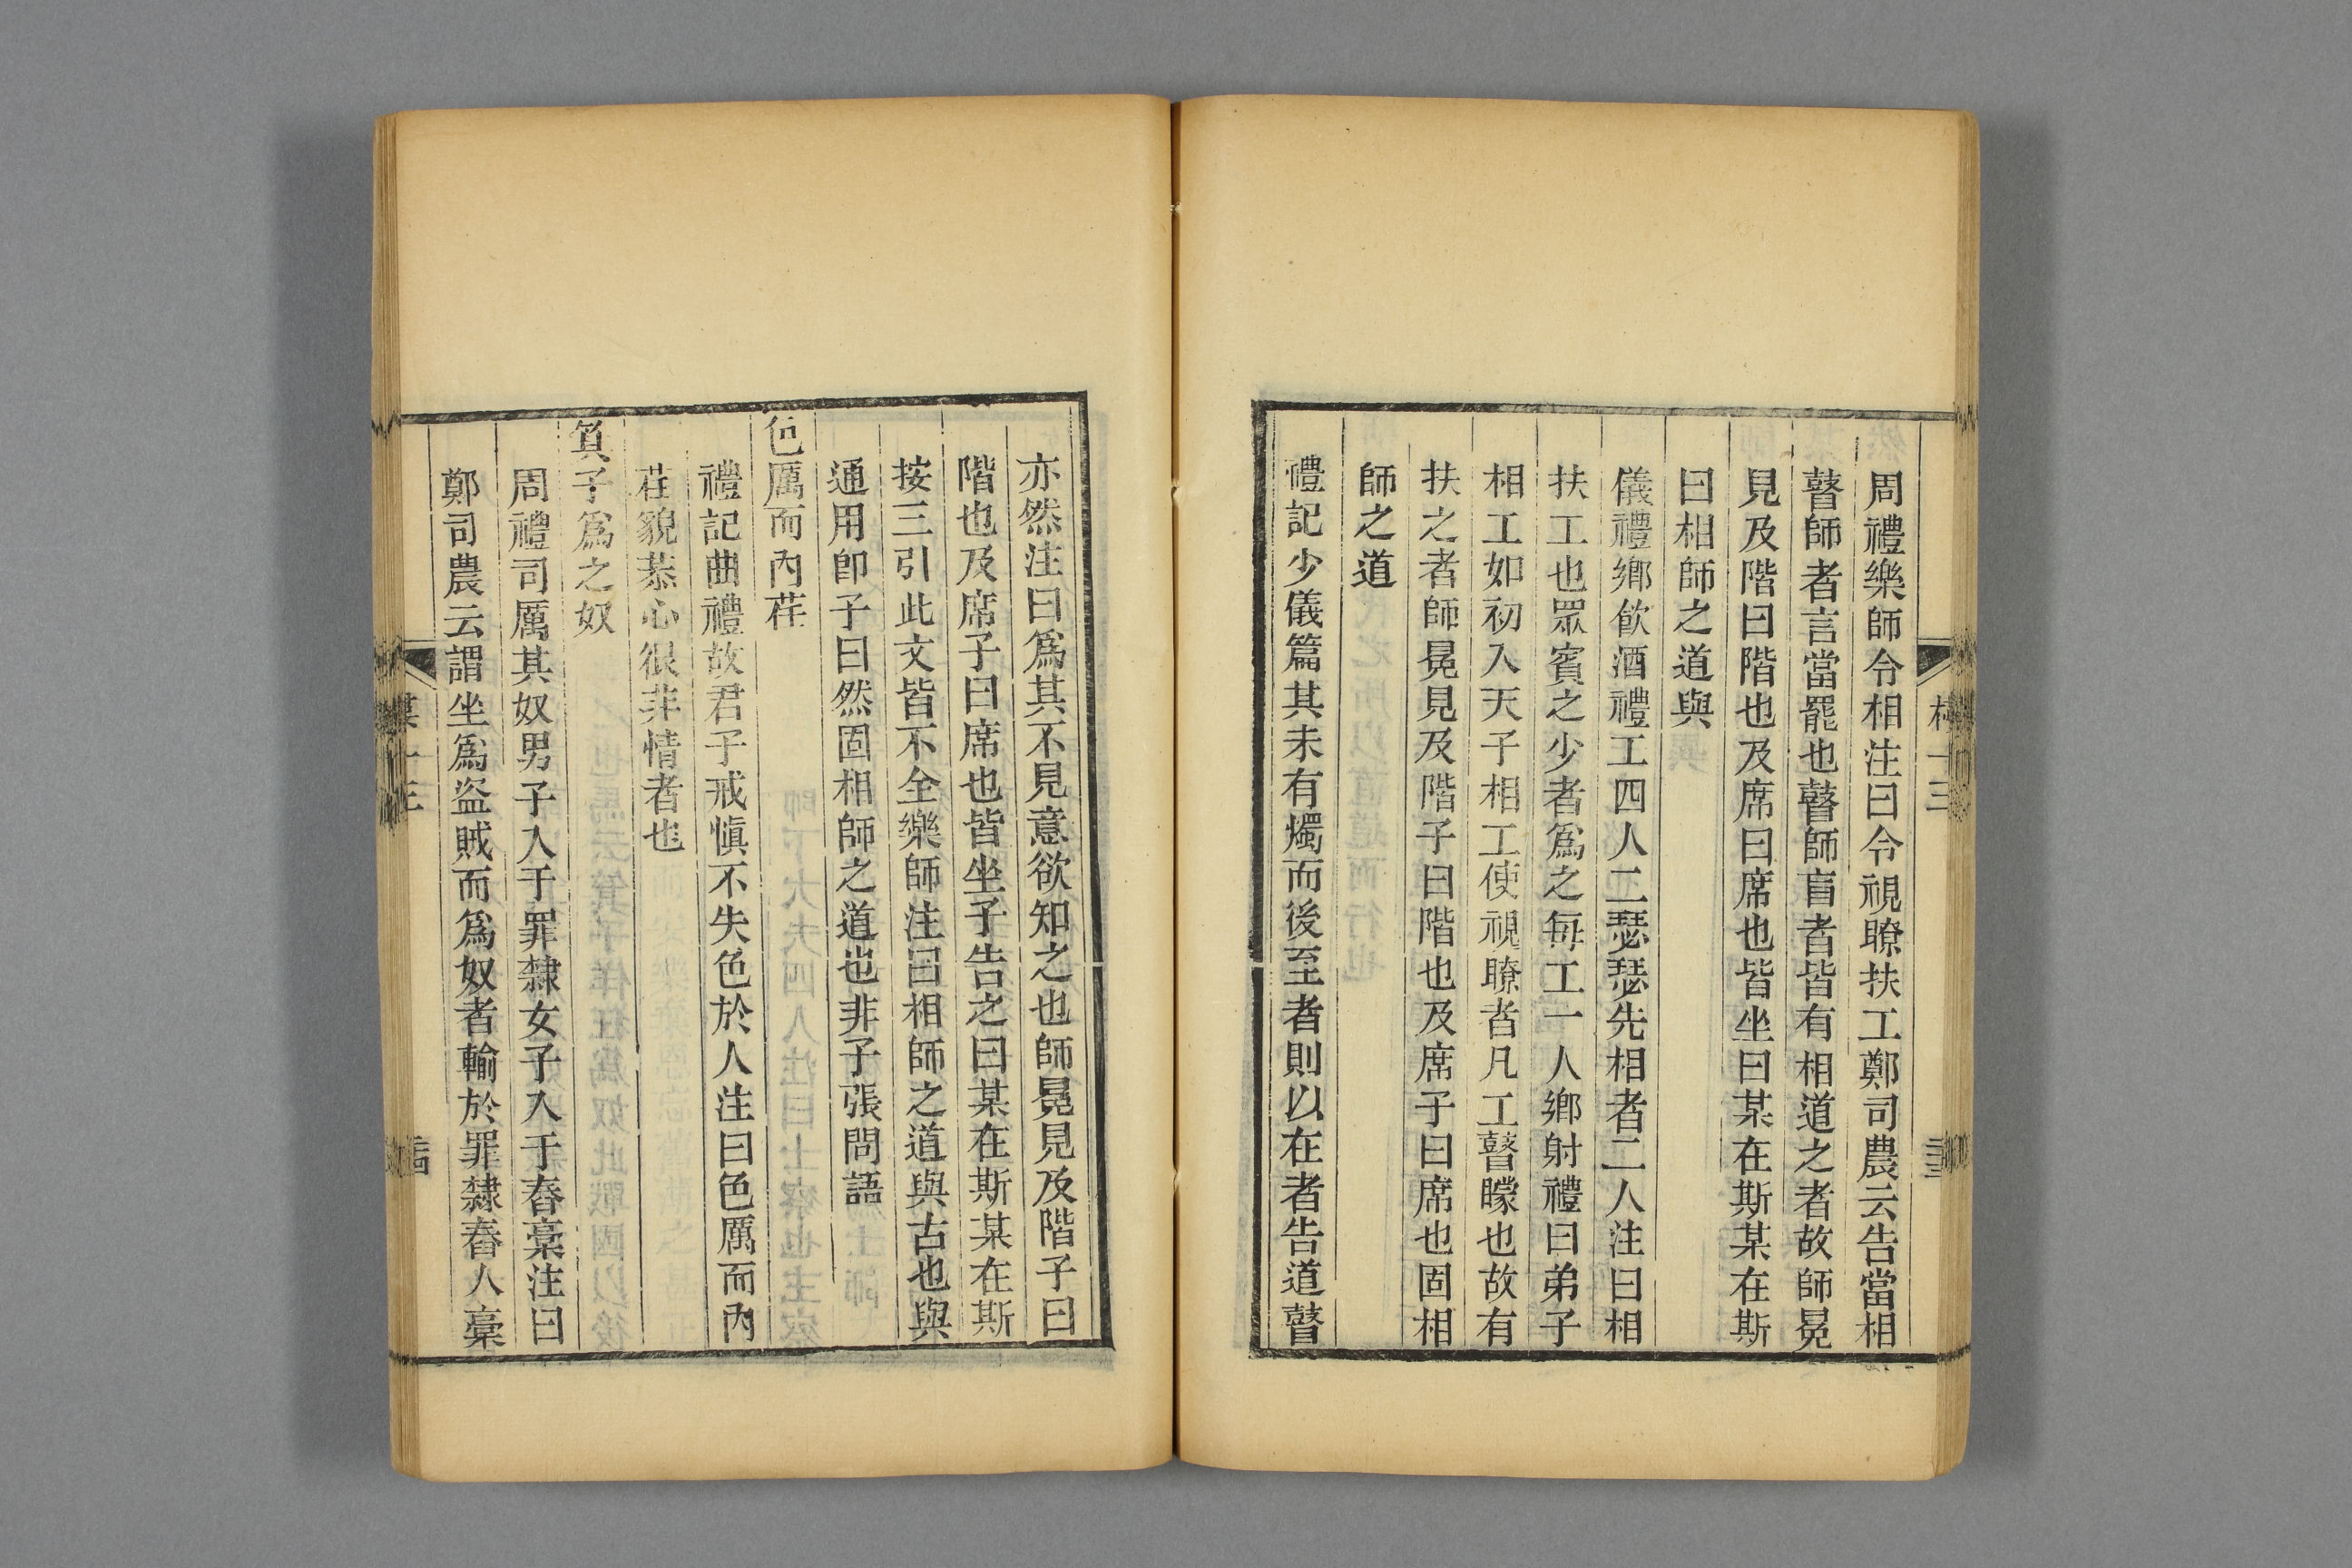 周禮樂師令相注曰令視瞭扶工鄭司農云告當相
瞽師者言當罷也瞽師盲者皆有相道之者故師冕
見及階曰階也及席曰席也皆坐曰某在斯某在斯
曰相師之道與
儀禮鄉飲酒禮工四人二瑟瑟先相者二人注曰相
扶工也眾賓之少者爲之每工一人鄉射禮曰弟子
相工如初入天子相工使視瞭者凡工瞽矇也故有
扶之者師冕見及階子曰階也及席子曰席也固相
師之道
禮記少儀篇其未有燭而後至者則以在者告道瞽
亦然注曰爲其不見意欲知之也師冕見及階子曰
階也及席子曰席也皆坐子告之曰某在斯某在斯
按三引此文皆不全樂師注曰相師之道與古也與
通用卽子曰然固相師之道也非子張問語
色厲而內荏
禮記曲禮故君子戒慎不失色於人注曰色厲而內
荏貌恭心很非情者也
箕子爲之奴
周禮司厲其奴男子入于罪隸女子入于舂稾注曰
鄭司農云謂坐爲盜賊而爲奴者輸於罪隸舂人稾